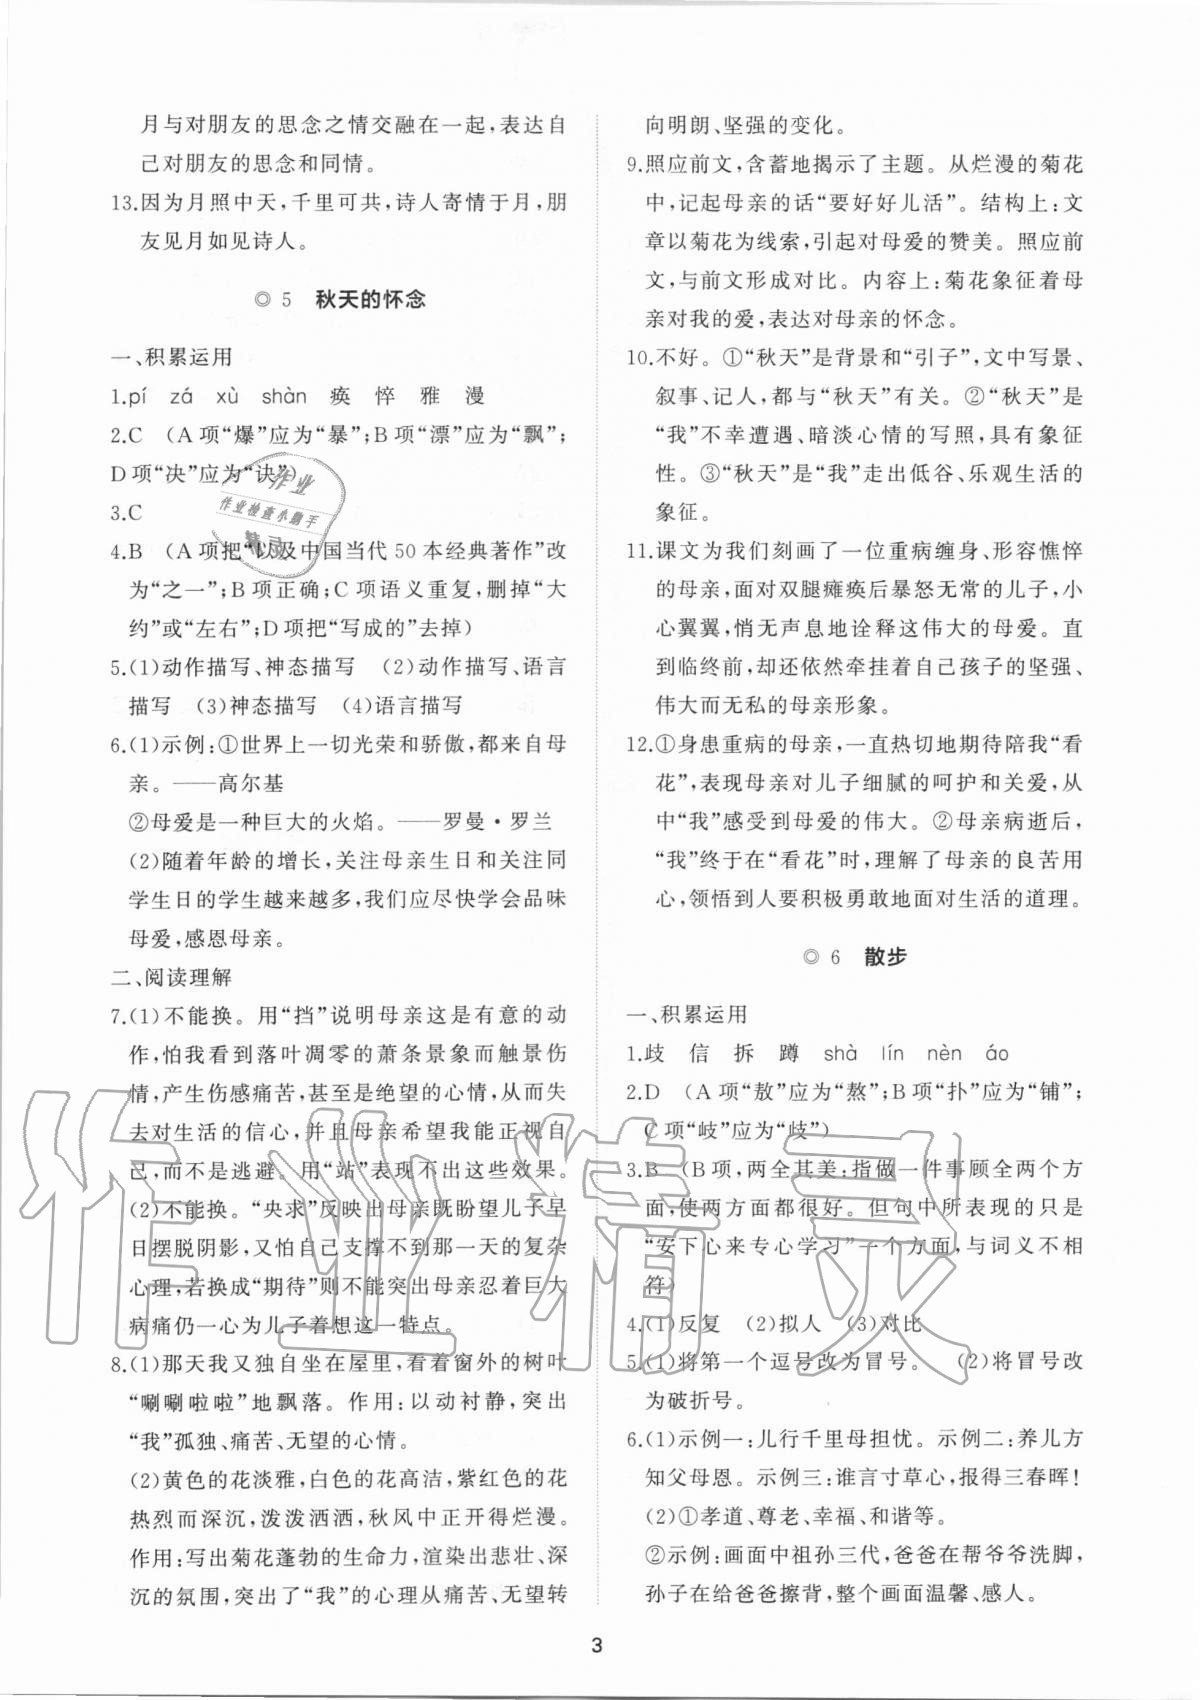 月与对朋友的思念之情交融在一起,表达自
己对朋友的思念和同情。
13.因为月照中天,千里可共,诗人寄情于月,朋
友见月如见诗人。
◎ 5 秋天的怀念
一、积累运用
1.pí zá xù shàn 痪 悴 雅 漫
2.C (A项“爆”应为“暴”;B项“漂”应为“飘”;
D项“决”应为“诀”)
3.C
4.B (A项把“以及中国当代50本经典著作”改
为“之一”;B项正确;C项语义重复,删掉“大
约”或“左右”;D项把“写成的”去掉)
5.(1)动作描写、神态描写 (2)动作描写、语言
描写 (3)神态描写 (4)语言描写
6.(1)示例:①世界上一切光荣和骄傲,都来自母
亲。——高尔基
②母爱是一种巨大的火焰。——罗曼·罗兰
(2)随着年龄的增长,关注母亲生日和关注同
学生日的学生越来越多,我们应尽快学会品味
母爱,感恩母亲。
二、阅读理解
7.(1)不能换。用“挡”说明母亲这是有意的动
作,怕我看到落叶凋零的萧条景象而触景伤
情,产生伤感痛苦、甚至是绝望的心情,从而失
去对生活的信心,并且母亲希望我能正视自
己,而不是逃避。用“站”表现不出这些效果。
(2)不能换。“央求”反映出母亲既盼望儿子早
日摆脱阴影,又怕自己支撑不到那一天的复杂
心理,若换成“期待”则不能突出母亲忍着巨大
病痛仍一心为儿子着想这一特点。
8.(1)那天我又独自坐在屋里,看着窗外的树叶
“唰唰啦啦”地飘落。作用:以动衬静,突出
“我”孤独、痛苦、无望的心情。
(2)黄色的花淡雅,白色的花高洁,紫红色的花
热烈而深沉,泼泼洒洒,秋风中正开得烂漫。
作用:写出菊花蓬勃的生命力,渲染出悲壮、深
沉的氛围,突出了“我”的心理从痛苦、无望转
向明朗、坚强的变化。
9.照应前文,含蓄地揭示了主题。从烂漫的菊花
中,记起母亲的话“要好好儿活”。结构上:文
章以菊花为线索,引起对母爱的赞美。照应前
文,与前文形成对比。内容上:菊花象征着母
亲对我的爱,表达对母亲的怀念。
10.不好。①“秋天”是背景和“引子”,文中写景、
叙事、记人,都与“秋天”有关。②“秋天”是
“我”不幸遭遇、暗淡心情的写照,具有象征
性。③“秋天”是“我”走出低谷、乐观生活的
象征。
11.课文为我们刻画了一位重病缠身、形容憔悴
的母亲,面对双腿瘫痪后暴怒无常的儿子,小
心翼翼,悄无声息地诠释这伟大的母爱。直
到临终前,却还依然牵挂着自己孩子的坚强、
伟大而无私的母亲形象。
12.①身患重病的母亲,一直热切地期待陪我“看
花”,表现母亲对儿子细腻的呵护和关爱,从
中“我”感受到母爱的伟大。②母亲病逝后,
“我”终于在“看花”时,理解了母亲的良苦用
心,领悟到人要积极勇敢地面对生活的道理。
◎ 6 散步
一、积累运用
1.歧 信 拆 蹲 shà lín nèn áo
2.D (A项“敖”应为“熬”;B项“扑”应为“铺”;
C项“岐”应为“歧”)
3.B (B项,两全其美:指做一件事顾全两个方
面,使两方面都很好。但句中所表现的只是
“安下心来专心学习”一个方面,与词义不相
符)
4.(1)反复 (2)拟人 (3)对比
5.(1)将第一个逗号改为冒号。 (2)将冒号改
为破折号。
6.(1)示例一:儿行千里母担忧。示例二:养儿方
知父母恩。示例三:谁言寸草心,报得三春晖!
(2)①孝道、尊老、幸福、和谐等。
②示例:画面中祖孙三代,爸爸在帮爷爷洗脚,
孙子在给爸爸擦背,整个画面温馨、感人。
3
作业
作业检查小助手
精灵
作业精灵